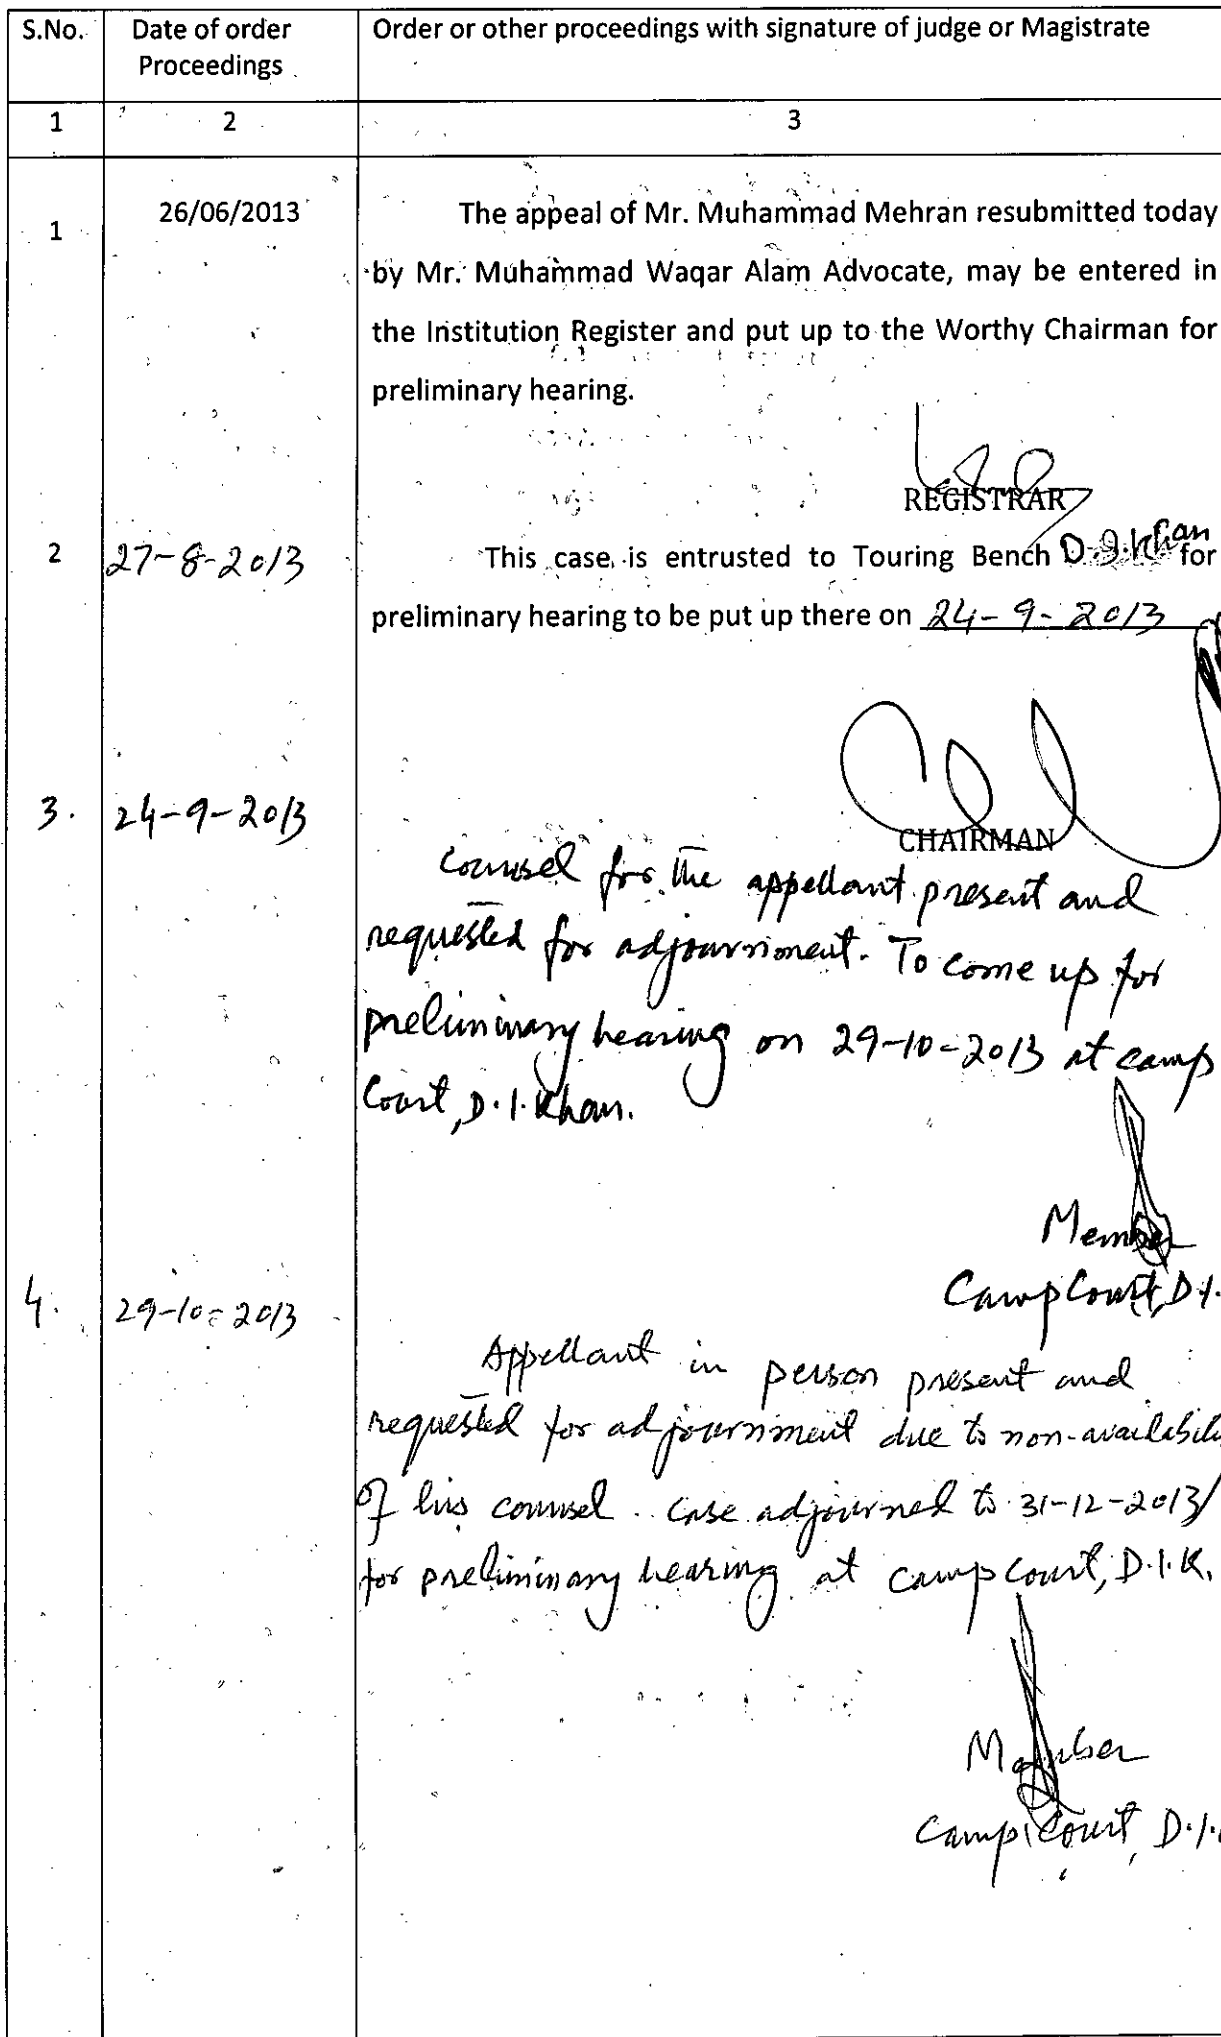 S.No. Date of order Order or other proceedings with signature of judge or Magistrate
Proceedings
1 2 3
1 26/06/2013 The appeal of Mr. Muhammad Mehran resubmitted today
by Mr. Muhammad Waqar Alam Advocate, may be entered in
the Institution Register and put up to the Worthy Chairman for
preliminary hearing.
REGISTRAR
2 27-8-2013 This case is entrusted to Touring Bench D.I.Khan for
preliminary hearing to be put up there on 24-9-2013
CHAIRMAN
3. 24-9-2013 Counsel for the appellant present and
requested for adjournment. To come up for
preliminary hearing on 29-10-2013 at camp
Court, D.I.Khan.
Member
Camp Court, D.I.
4. 29-10-2013 Appellant in person present and
requested for adjournment due to non-availabili
of his counsel. Case adjourned to 31-12-2013
for preliminary hearing at camp court, D.I.K.
Member
Camp Court, D.I.